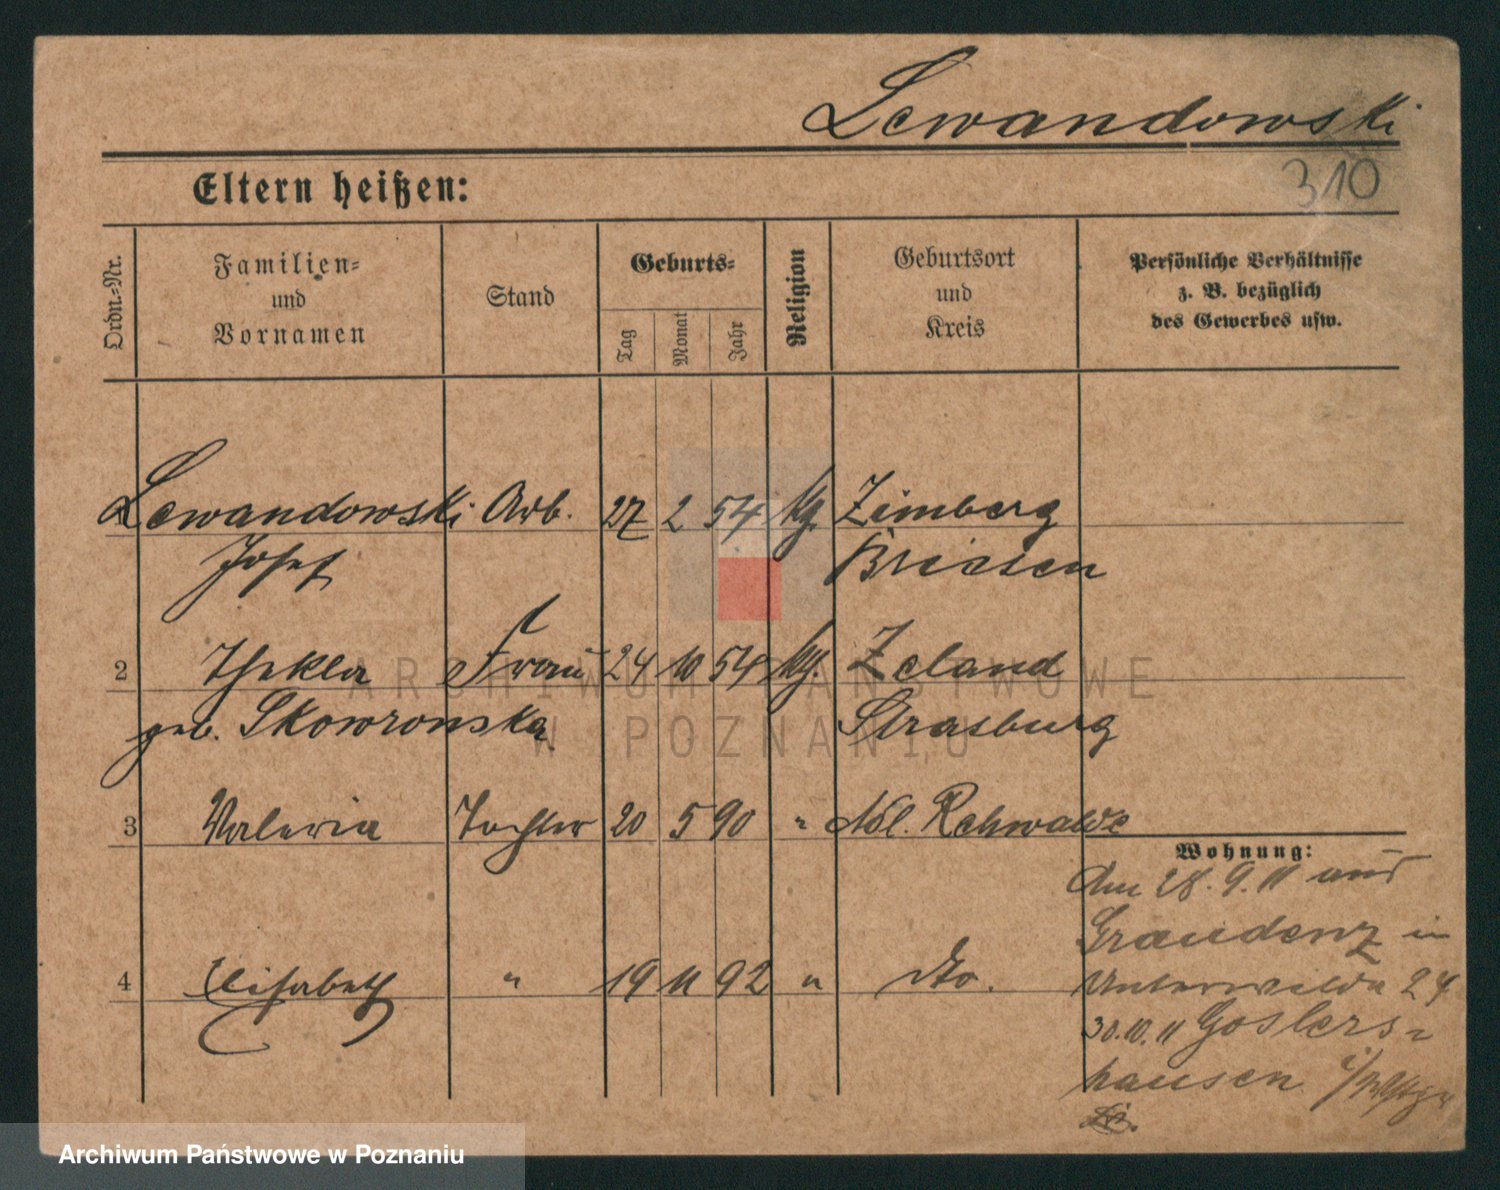 Lewandowski
310
Eltern heißen:
Ordn.-Nr.
Familien-
und
Vornamen
Stand
Geburts-
Tag
Monat
Jahr
Religion
Geburtsort
und
Kreis
Persönliche Verhältnisse
z. B. bezüglich
des Gewerbes usw.
Lewandowski Arb. 27 2 54 kg. Zimberg
Josef Briesen
2 Thekla Frau 24 10 54 kg. Zeland
geb. Skowronska Strasburg
3 Valeria Tochter 20 5 90 " Adl. Rehwalde
Wohnung:
Am 28. 9. 11 aus
Graudenz in
4 Elisabeth " 19 11 92 " dto. Unterwilda 24
30.10.11 Goslers-
hausen i/Westpr
ARCHIWUM PAŃSTWOWE
W POZNANIU
Archiwum Państwowe w Poznaniu